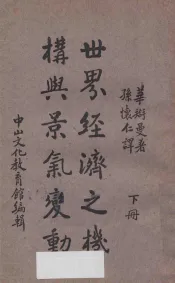 華爾曼著
孫懷仁譯
下冊
世界經濟之機
構與景氣變動
中山文化教育館編輯